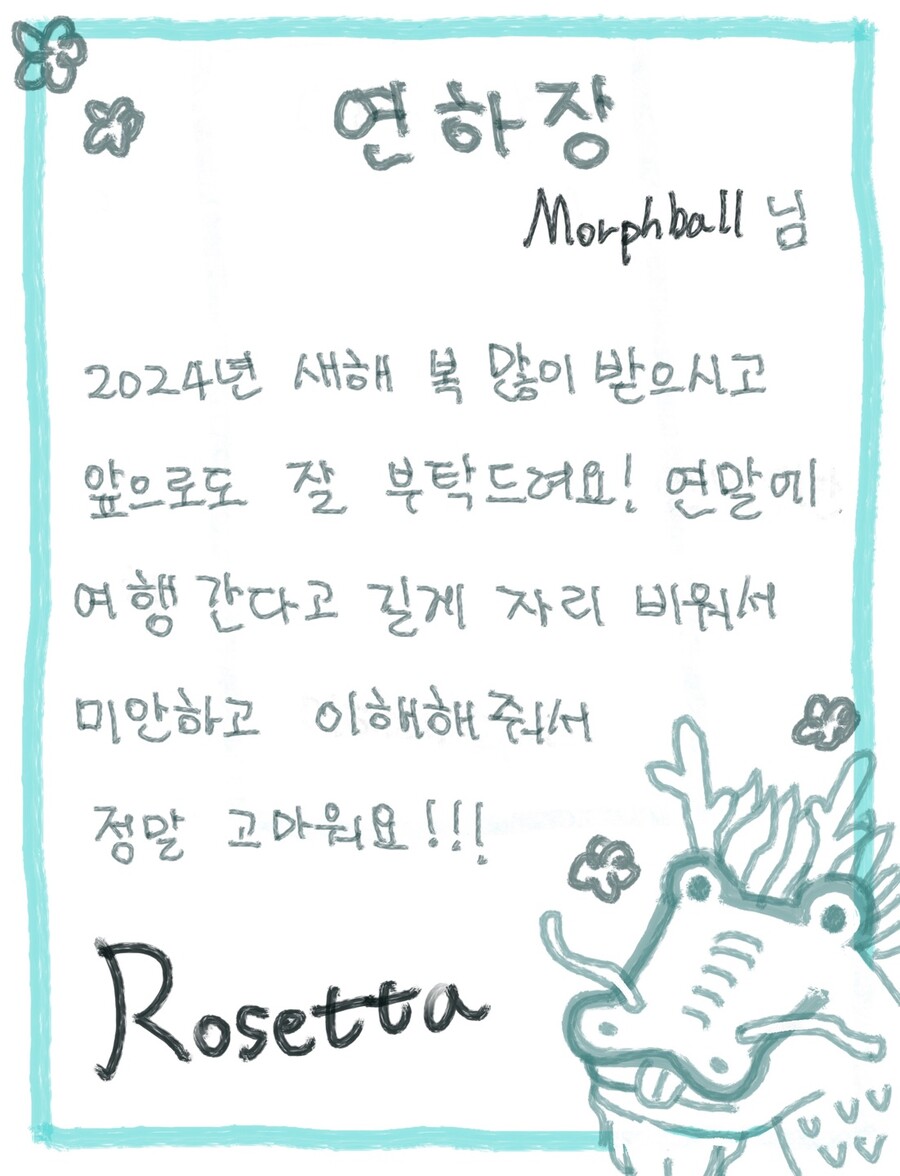 연하장
Morphball 님
2024년 새해 복 많이 받으시고
앞으로도 잘 부탁드려요! 연말에
여행 간다고 길게 자리 비워서
미안하고 이해해줘서
정말 고마워요!!!
Rosetta